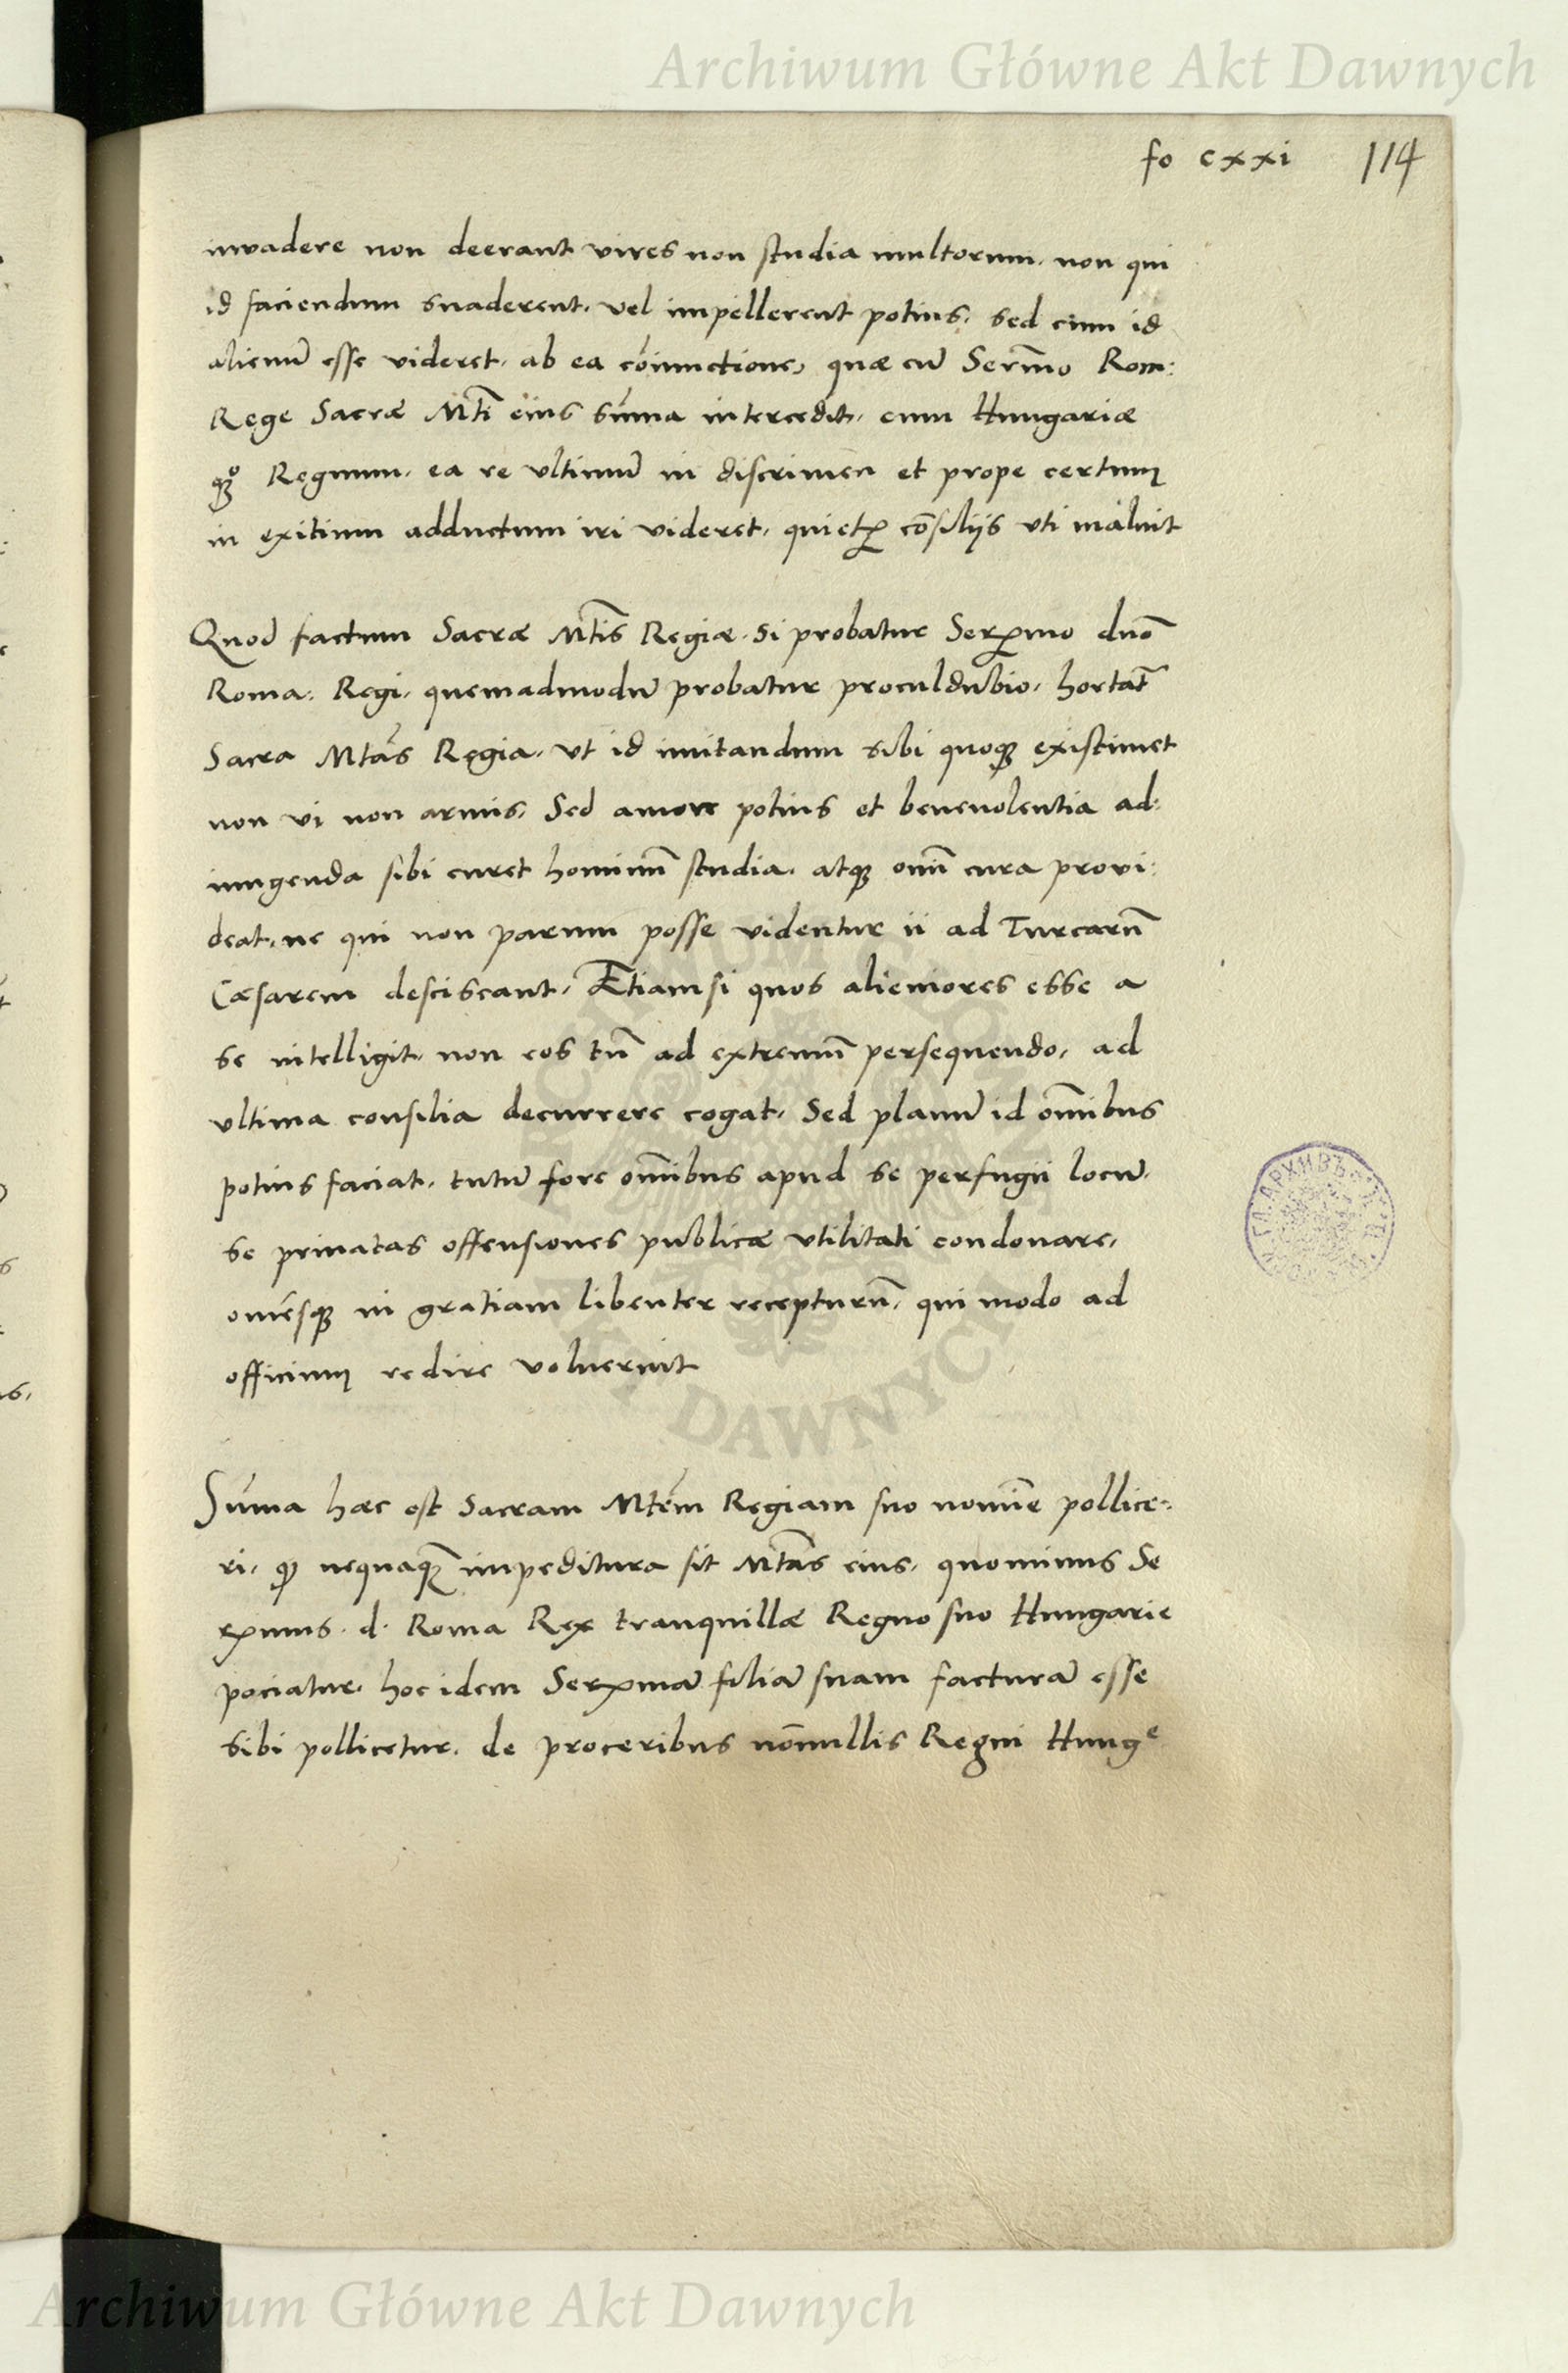 Archiwum Główne Akt Dawnych
fo cxxi 114
invadere non deerant vires non studia multorum. non qui
id faciendum suaderent. vel impellerent potius. sed cum id
alienū esse videret. ab ea cōiunctione, quæ cū Serm̄o Rom:
Rege Sacræ Mtī eius sūma intercedit. cum Hungariæ
qz° Regnum. ea re ultimū in discrimen et prope certum
in exitium adductum iri videret. quietꝝ cōsilijs uti maluit
Quod factum Sacræ Mtīs Regiæ. si probatur Serꝰmo dnō
Roma: Regi. quemadmodū probatur proculdubio. hortat̄
Sacra Mtās Regia. ut id imitandum sibi quoqꝫ existimet
non vi non armis. Sed amore potius et benevolentia ad:
iungenda sibi curet hominū studia. atqꝫ omī cura provi:
deat. ne qui non parum posse videntur ii ad Turcarū
Cæsarem desciscant. Ætiamsi quos alieniores esse a
se intelligit. non eos tn̄ ad extremū persequendo. ad
ultima consilia decurrere cogat. Sed planū id om̄ibus
potius faciat. tutū fore om̄ibus apud se perfugii locū.
se privatas offensiones publicæ utilitati condonare.
omēsqꝫ in gratiam libenter recepturū. qui modo ad
officium redire voluerint
Sūma hæc est Sacram Mtēm Regiam suo nomīe pollice:
ri. qꝫ nequaqꝫ̄ impeditura sit Mtās eius. quominus Se
rꝰmus. d. Roma Rex tranquillæ Regno suo Hungarie
pociatur. hoc idem Serꝰmā filiā suam facturā esse
sibi pollicetur. de proceribus nōnullis Regni Hungᵉ
DAWNYCH
Archiwum Główne Akt Dawnych